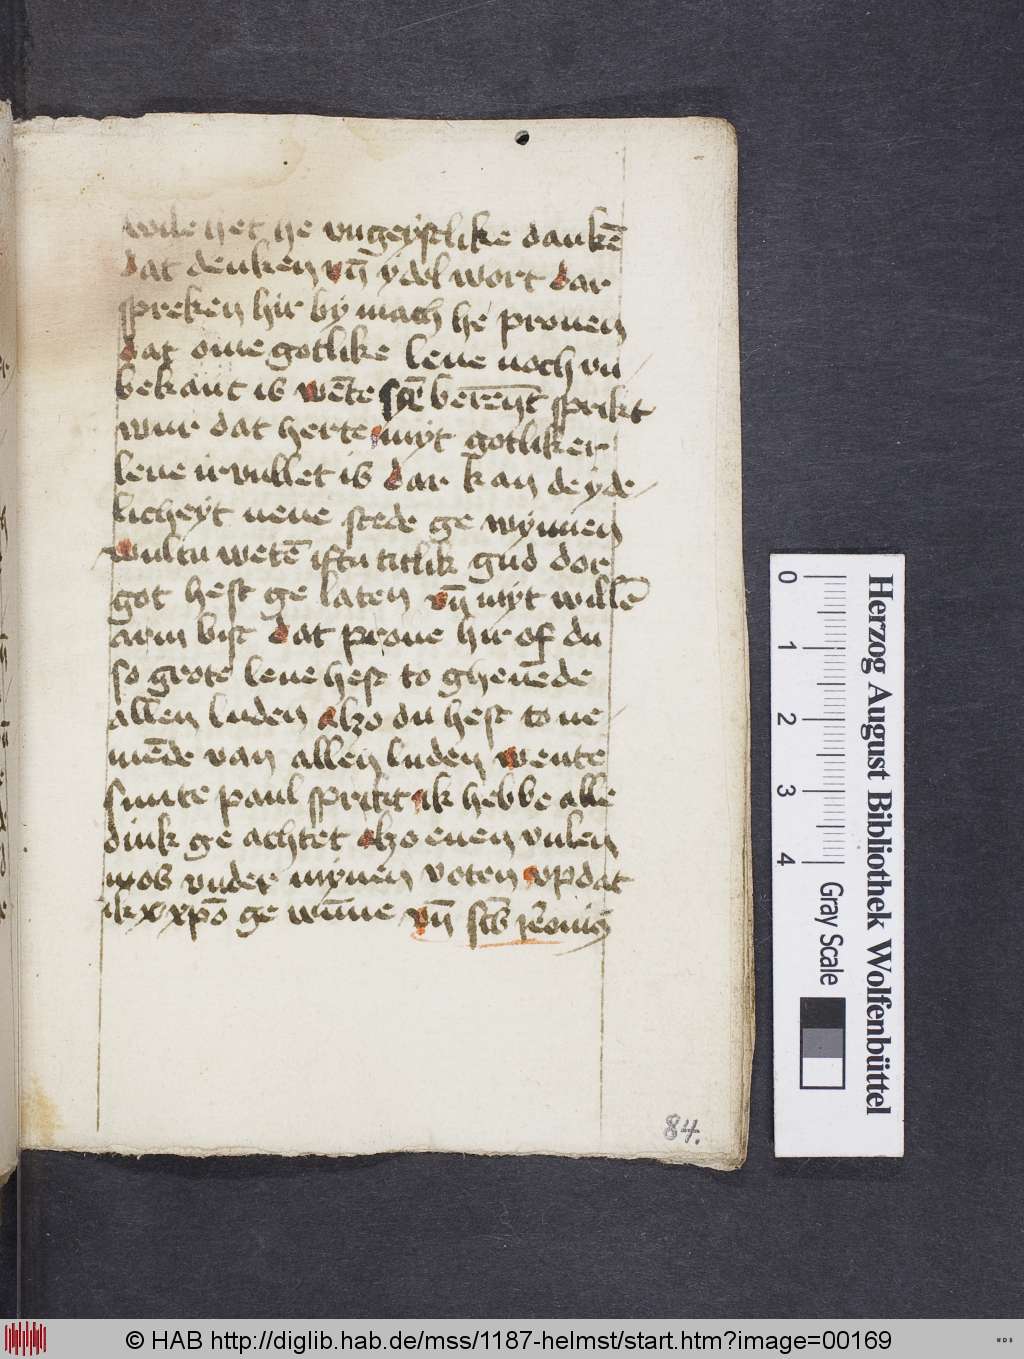 wile het he vngeystlike dankē
dat denken vn̄ ydel wort dar
spreken hir by mach he prouen
dat ome gotlike leue noch vn /
bekant is wēte berēn̄t sprikt
wur dat herte myt gotliker
leue irvullet is dar kan de yde /
licheyt nene stede ge wynnen
wultu wetē iftu titlik gud dor
got hest ge laten vn̄ myt willē
arm bist dat proue hir of du
so grote leue hest to gheuēde
allen luden alzo du hest to ne /
mēde van allen luden wente
sunte paul sprikt ik hebbe alle
dink ge achtet alzo enen vulen
mos vnder mynen voten vp dat
ik xpō ge wīne vn̄ scūs
84.
0 1 2 3 4
Gray Scale
Herzog August Bibliothek Wolfenbüttel
© HAB http://diglib.hab.de/mss/1187-helmst/start.htm?image=00169